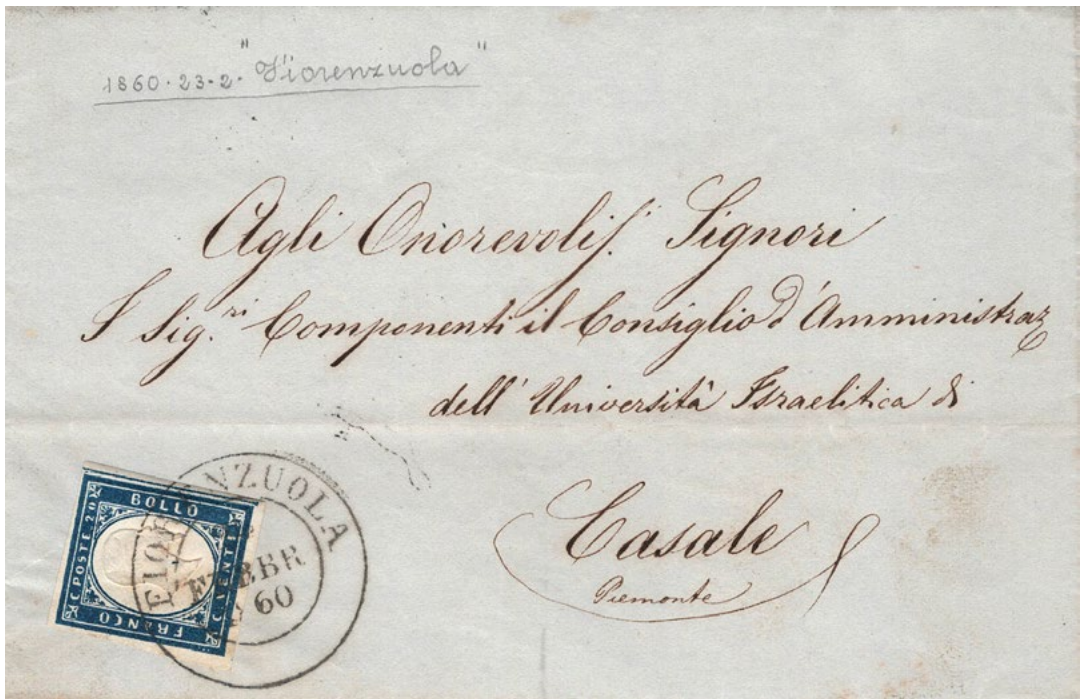 1860.23-2. "Fiorenzuola"
Agli Onorevoliss.i Signori
I Sig.ri Componenti il Consiglio d'Amministraz
dell' Università Israelitica di
Casale
Piemonte
FIORENZUOLA
FEBBR
60
BOLLO
C. POSTE 20
C. VENTI
FRANCO